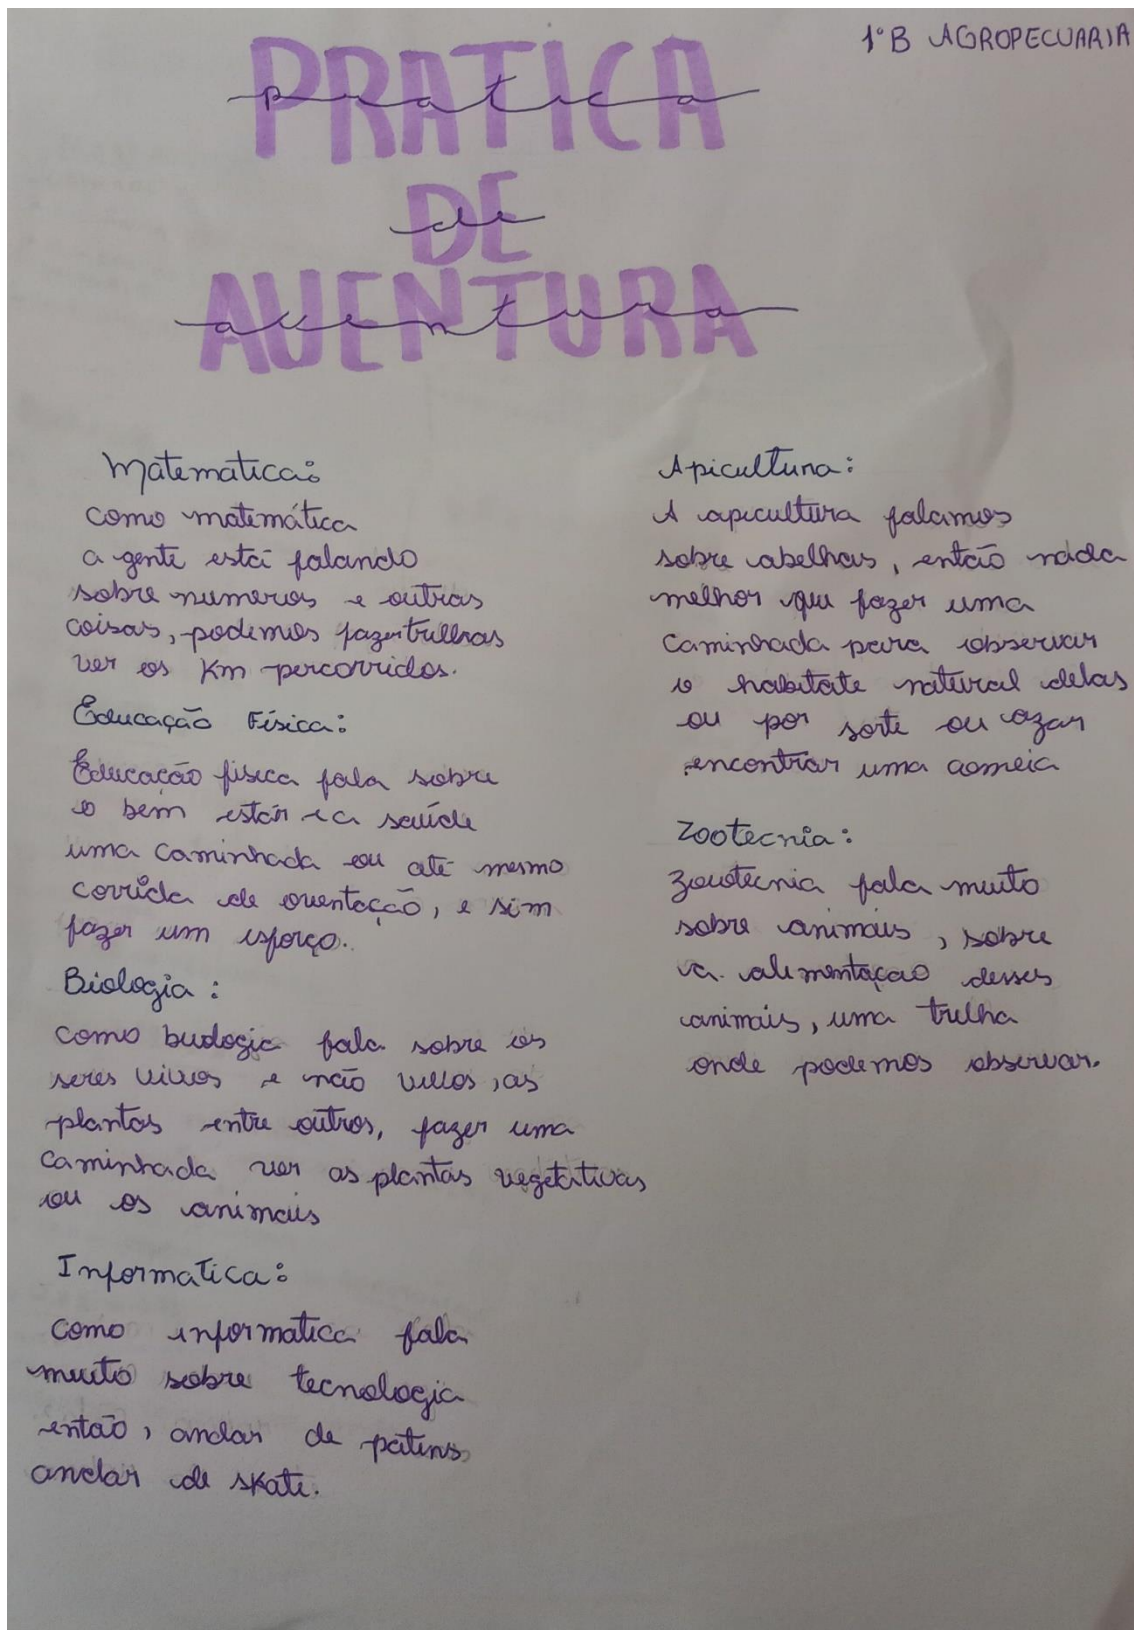 1°B AGROPECUARIA
PRATICA
pratica
DE
de
AVENTURA
aventura
Matematica:
como matemática
a gente está falando
sobre numeros e outras
coisas, podemos fazer trilhas
ver os Km percorridos.
Educação Física:
Educação fisica fala sobre
o bem estar e a saúde
uma caminhada ou até mesmo
corrida de orientação, e sim
fazer um esforço.
Biologia:
como biologia fala sobre os
seres vivos e não vivos, as
plantas entre outros, fazer uma
caminhada ver as plantas vegetativas
ou os animais
Informatica:
como informatica fala
muito sobre tecnologia
então, andar de patins
andar de skate.
Apicultura:
A apicultura falamos
sobre abelhas, então nada
melhor que fazer uma
caminhada para observar
o habitate natural delas
ou por sorte ou azar
encontrar uma comeia
Zootecnia:
Zootecnia fala muito
sobre animais, sobre
a alimentaçao desses
animais, uma trilha
onde podemos observar.